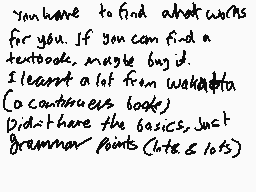 You have to find what works
for you. If you can find a
textbook, maybe buy it.
I learnt a lot from wakatta
(a continuers book)
Didn't have the basics, just
grammar points (lots & lots)